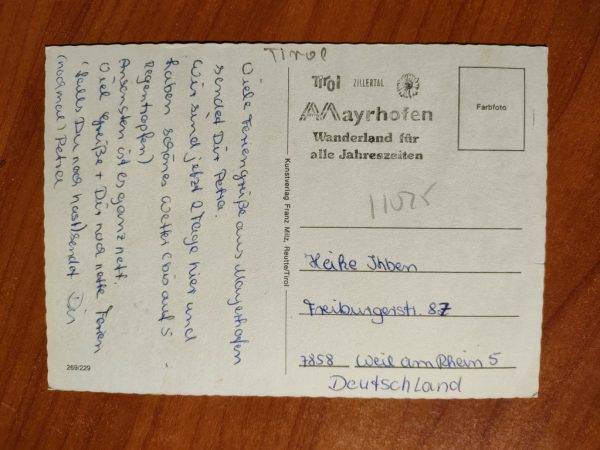 Tirol
Viele Feriengrüße aus Mayerhofen
sendet Dir Petra.
Wir sind jetzt 2 Tage hier und
haben schönes Wetter (bis auf 5
Regentropfen)
Ansonsten ist es ganz nett.
Viel Grüße + Dir noch nette Ferien
(falls Du noch hast) sendet Dir
(nochmal) Petra
269/229
Kunstverlag Franz Milz, Reutte/Tirol
Tirol ZILLERTAL
Mayrhofen
Wanderland für
alle Jahreszeiten
Farbfoto
Heike Ihben
Freiburgerstr. 87
7858 Weil am Rhein 5
Deutschland